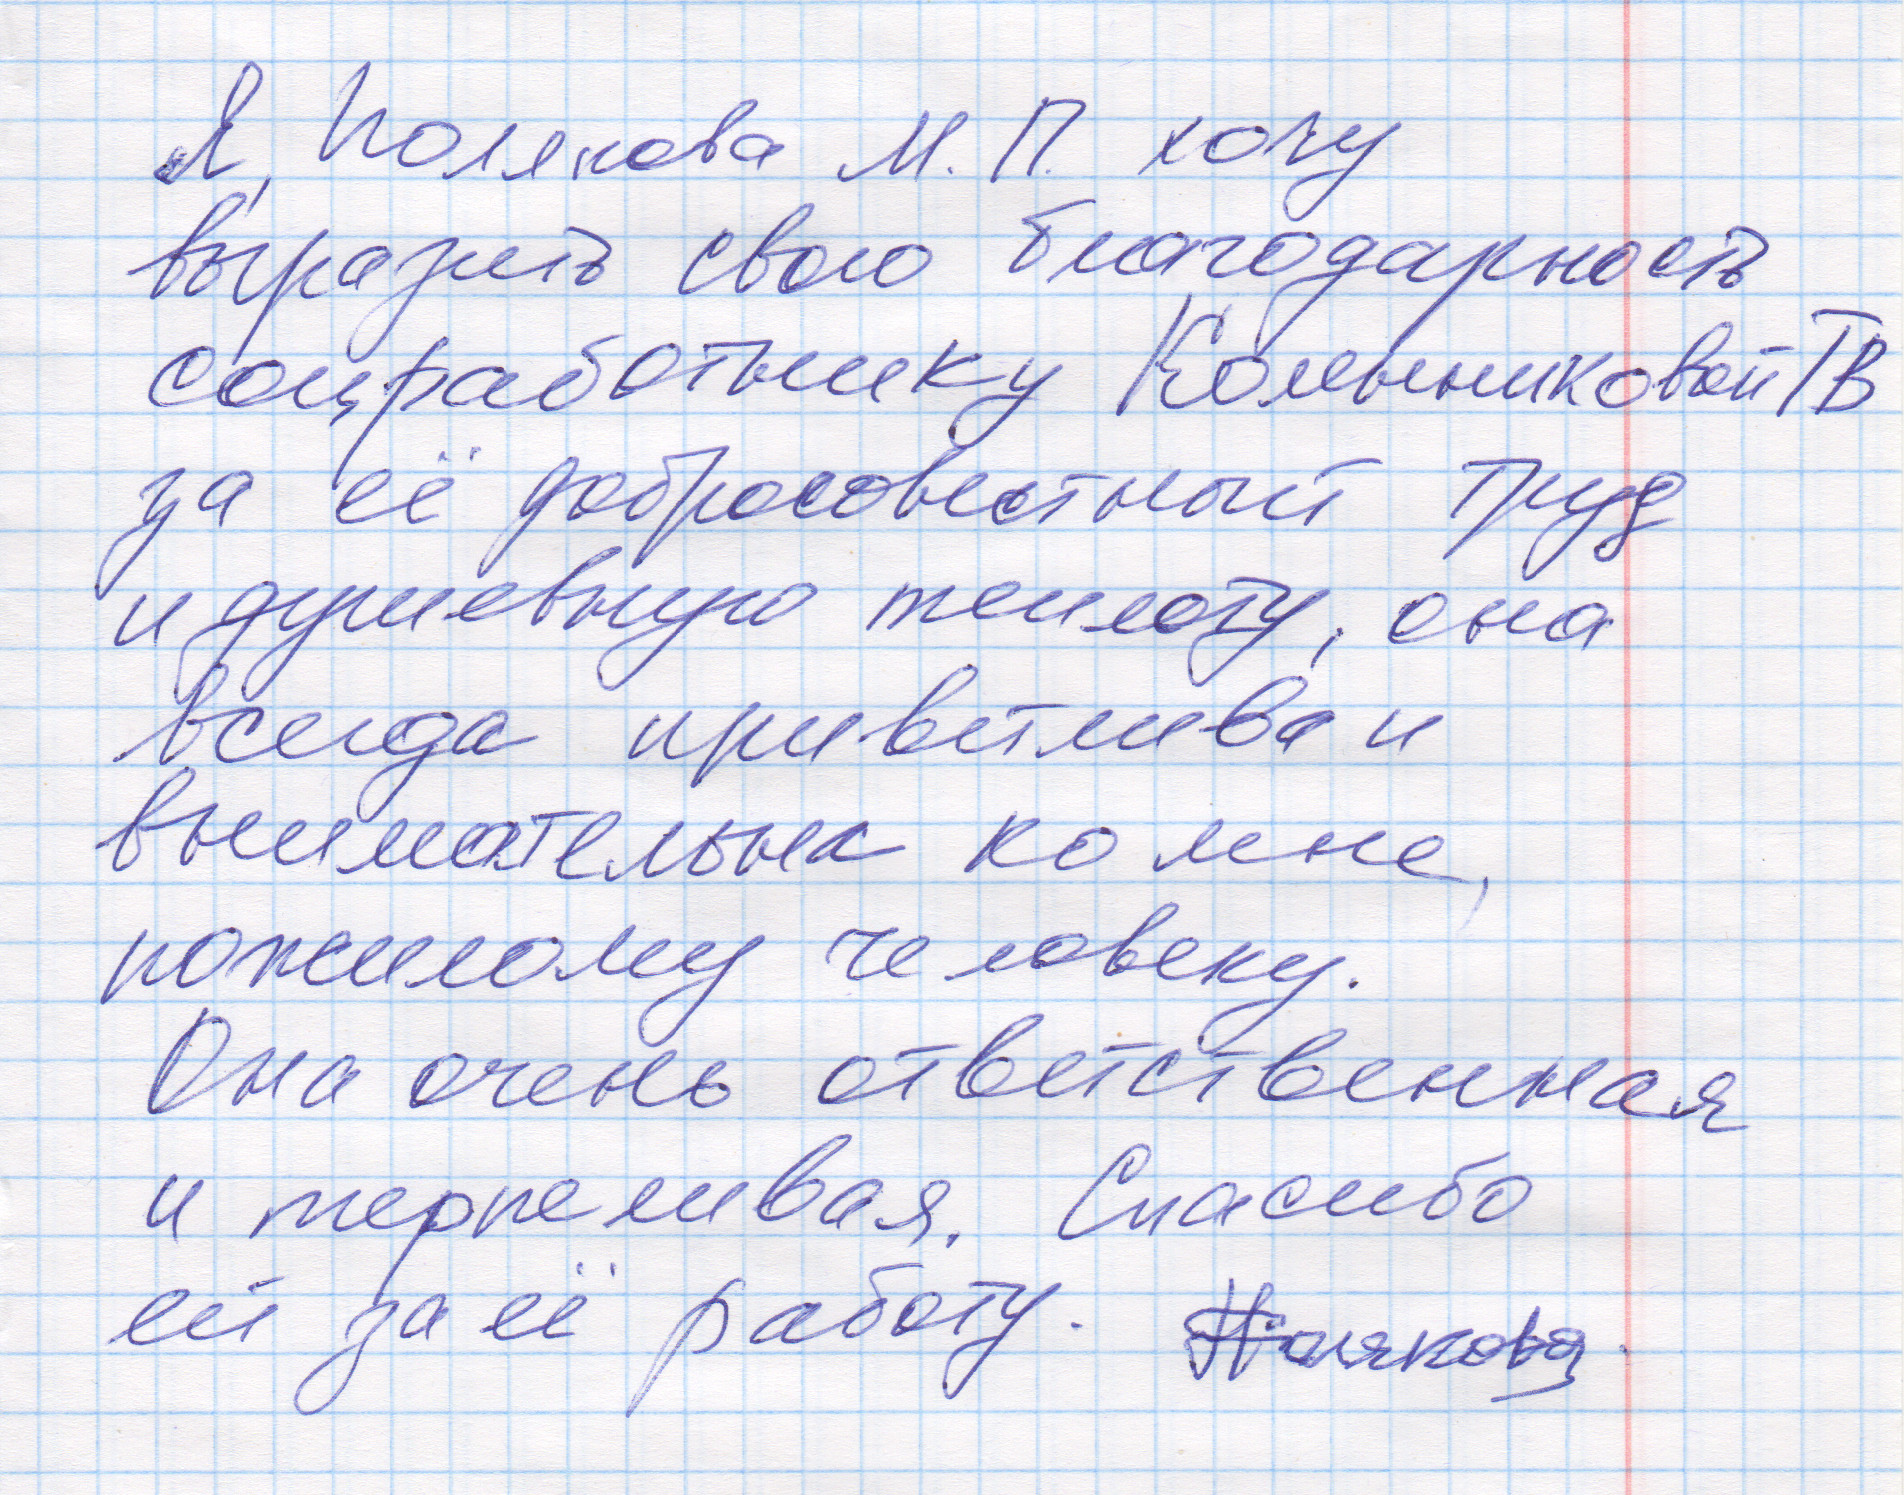 Я, Полякова М.П. хочу
выразить свою благодарность
соцработнику Колынниковой ТВ
за её добросовестный труд
и душевную теплоту, она
всегда приветлива и
внимательна ко мне,
пожилому человеку.
Она очень ответственная
и терпеливая. Спасибо
ей за её работу. Полякова.